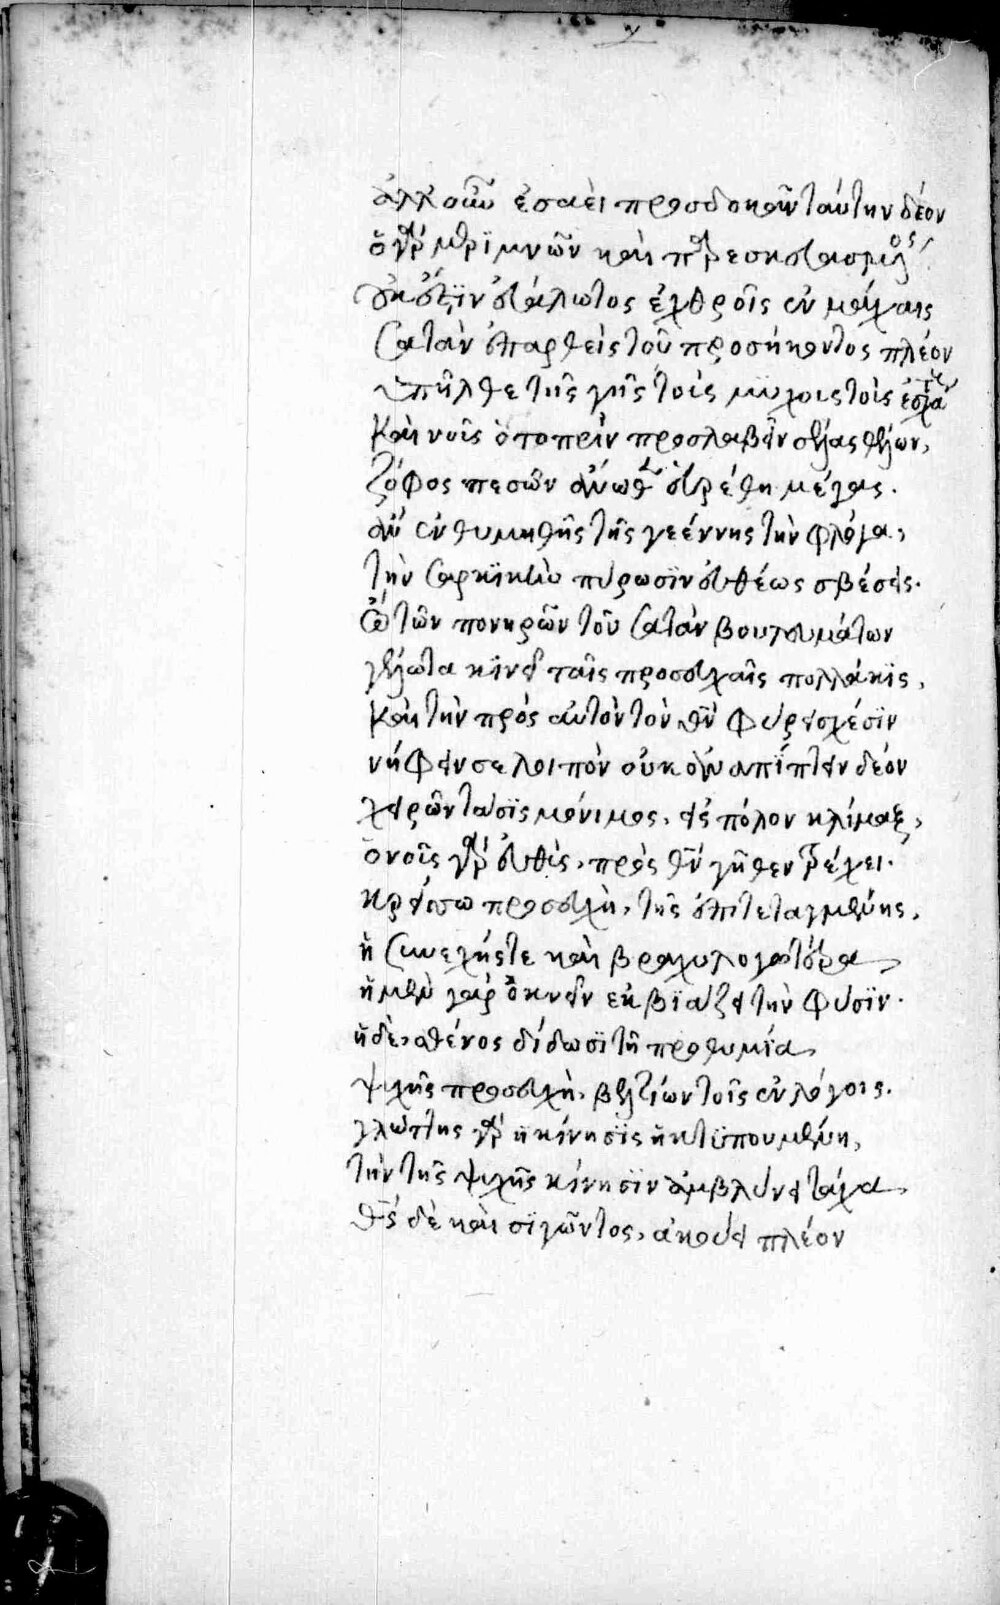 ἀλλ' οὖν ἐσαεὶ προσδοκᾶν ταύτην δέον
ὁ γὰρ μεριμνῶν καὶ παρεσκευασμένος
οὐκ ἔστιν εὐάλωτος ἐχθροῖς ἐν μάχαις
Σατὰν ἐπαρθεὶς τοῦ προσήκοντος πλέον
ὑπῆλθε τῆς γῆς τοῖς μυχοῖς τοῖς ἐσχάτοις
καὶ νοῦς ὁ τοπρὶν προσλαβεῖν σέλας θέλων,
ζόφος πεσὼν ἄνωθεν εὑρέθη μέγας.
ἂν ἐνθυμηθῇς τῆς γεέννης τὴν φλόγα,
τὴν σαρκικὴν πύρωσϊν εὐθέως σβέσεις.
ὢ τῶν πονηρῶν τοῦ Σατὰν βουλευμάτων
γέλωτα κινεῖ ταῖς προσευχαῖς πολλάκις,
καὶ τὴν πρὸς αὐτὸν τὸν θεὸν φύρει σχέσϊν
νήφειν σε λοιπὸν οὐκοῦν ἀπϊπτειν δέον
χειρῶν τάσϊς μόνιμος, εἰς πόλον κλίμαξ,
ὁ νοῦς γὰρ εὐθὺς, πρὸς θεὸν γῆθεν τρέχει.
κρείσσω προσευχὴ, τῆς ἐπιτεταγμένης,
ἡ συνεχής τε καὶ βραχυλογωτέρα
ἡ μὲν γὰρ ὀκνεῖν ἐκβϊάζει τὴν φύσϊν.
ἡ δὲ, σθένος δίδωσϊ τῇ προθυμϊα,
ψυχῆς προσευχὴ, βελτίων τοῖς ἐν λόγοις.
γλώττης γὰρ ἡ κίνησϊς ἡ κτϋπουμένη,
τὴν τῆς ψυχῆς κίνησϊν ἀμβλύνει τάχα
θεὸς δὲ καὶ σϊγῶντος, ἀκούει πλέον